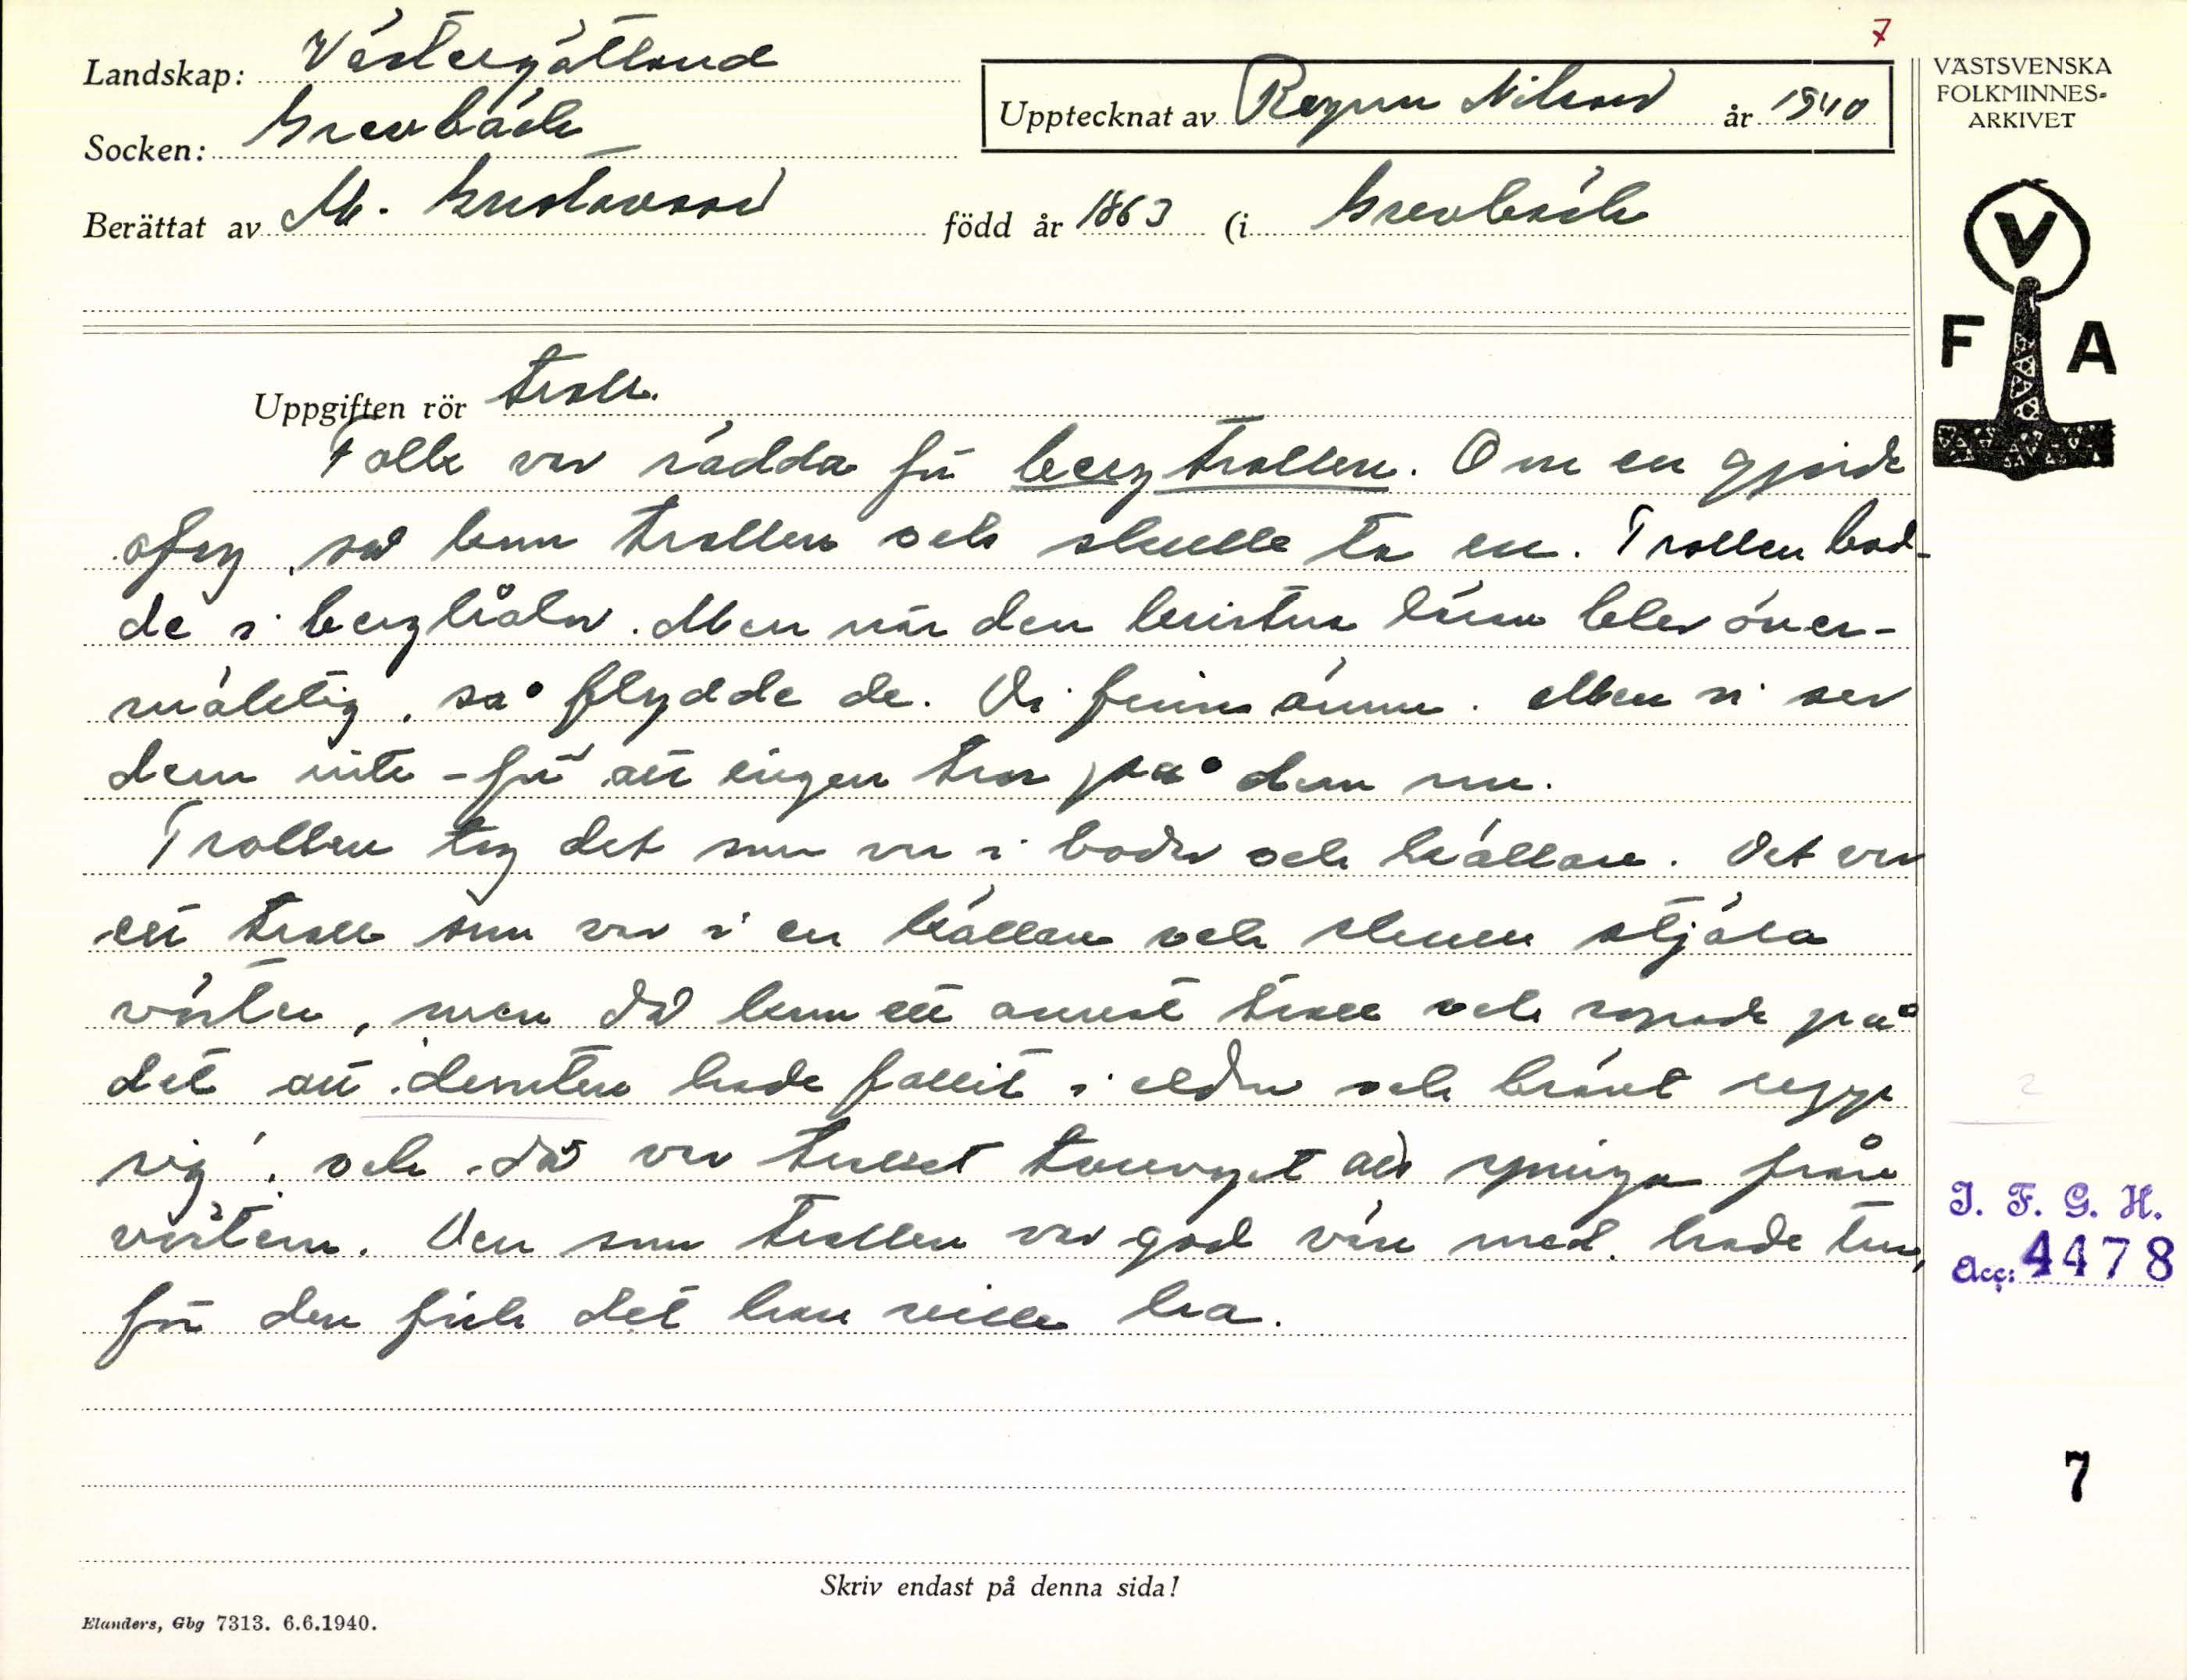 7
Landskap: Västergötland
Upptecknat av Ragnar Nilsson år 1940
VÄSTSVENSKA
FOLKMINNES-
ARKIVET
Socken: Grevbäck
Berättat av M. Gustavsson född år 1863 (i Grevbäck
V
F A
Uppgiften rör troll.
Folk var rädda för bergtrollen. Om en gjorde
ofog, så kom trollen och skulle ta en. Trollen bod-
de i berghålor. Men när den kristna läran blev över-
mäktig, så flydde de. De finns ännu. Men vi ser
dem inte - för att ingen tror på dem nu.
Trollen tog det som var i bodar och källare. Det var
ett troll som var i en källare och skulle stjäla
vörten, men då kom ett annat troll och ropade på
det att hade fallit i elden och bränt
sig", och då var trollet tvunget att springa från
vörten. Den som trollen var god vän med, hade tur,
för den fick det han ville ha.
I. F. G. H.
Acc: 4478
7
Skriv endast på denna sida!
Elanders, Gbg 7313. 6.6.1940.